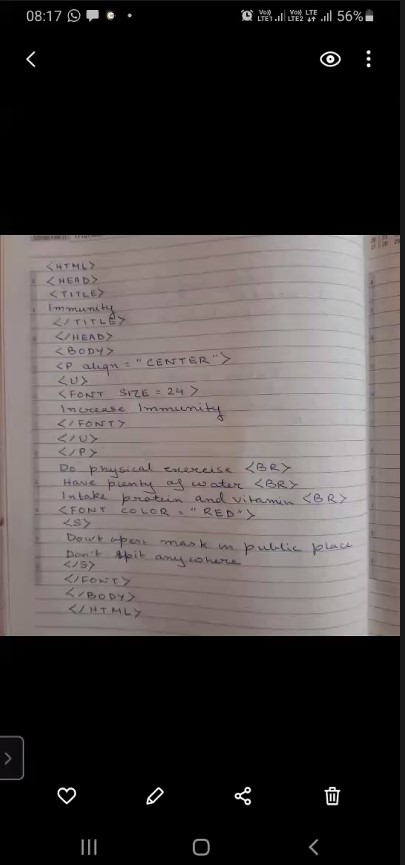 08:17
Vo)) LTE1 Vo)) LTE LTE2 56%
<HTML>
<HEAD>
<TITLE>
Immunity
</TITLE>
</HEAD>
<BODY>
<P align = "CENTER">
<U>
<FONT SIZE = 24 >
Increase Immunity
</FONT>
</U>
</P>
Do physical exercise <BR>
Have plenty of water <BR>
Intake protein and vitamin <BR>
<FONT COLOR = "RED">
<S>
Don't open mask in public place
Don't spit anywhere
</S>
</FONT>
</BODY>
</HTML>